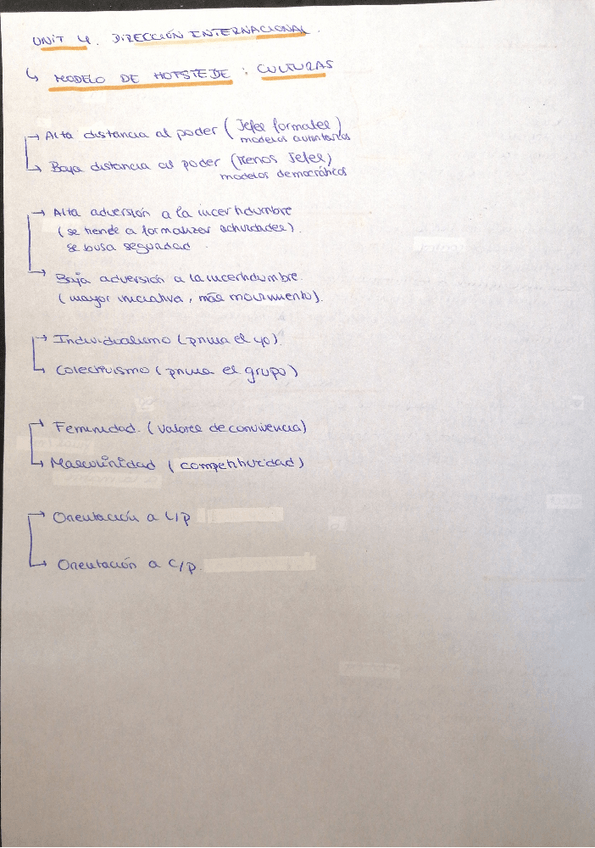 UNIT 4. DIRECCIÓN INTERNACIONAL.
↳ MODELO DE HOFSTEDE : CULTURAS
→ Alta distancia al poder (Jefes formales)
modelos autoritarios
→ Baja distancia al poder (Menos Jefes)
modelos democráticos
→ Alta adversión a la incertidumbre
(se tiende a formalizar actividades).
se busa seguridad.
→ Baja adversión a la incertidumbre.
(mayor iniciativa, más movimiento).
→ Individualismo (prima el yo).
→ Colectivismo (prima el grupo)
→ Feminidad. (valores de convivencia)
→ Masculinidad (competitividad)
→ Orientación a L/p
→ Orientación a C/p.